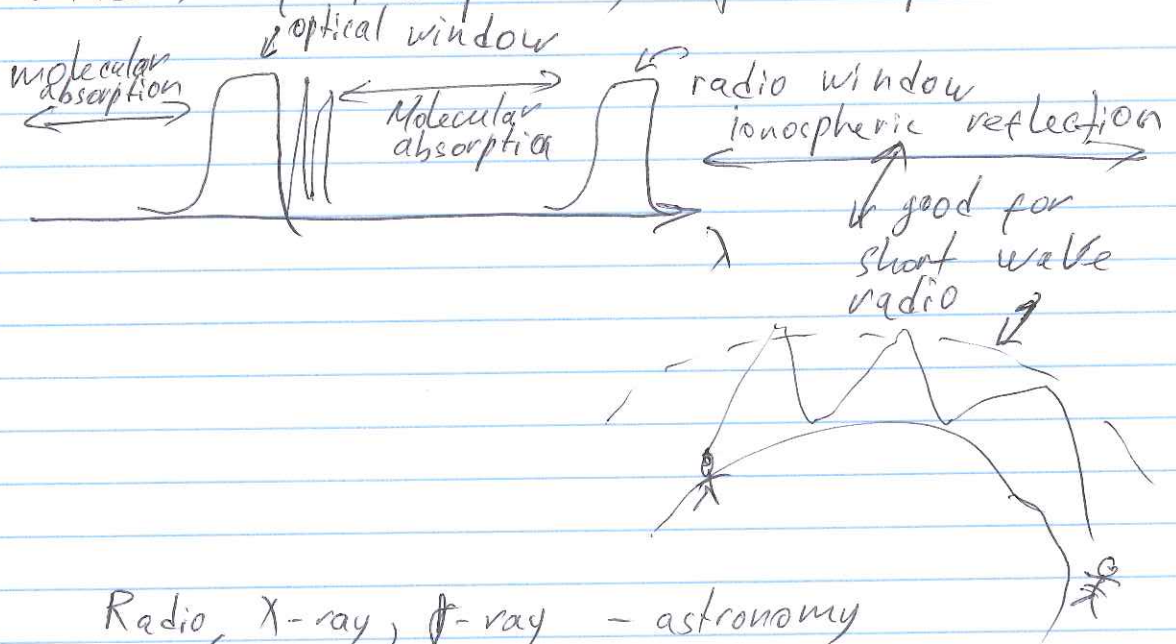 optical window
molecular
absorption
Molecular
absorption
radio window
ionospheric reflection
λ
good for
short wave
radio
Radio, X-ray, γ-ray - astronomy